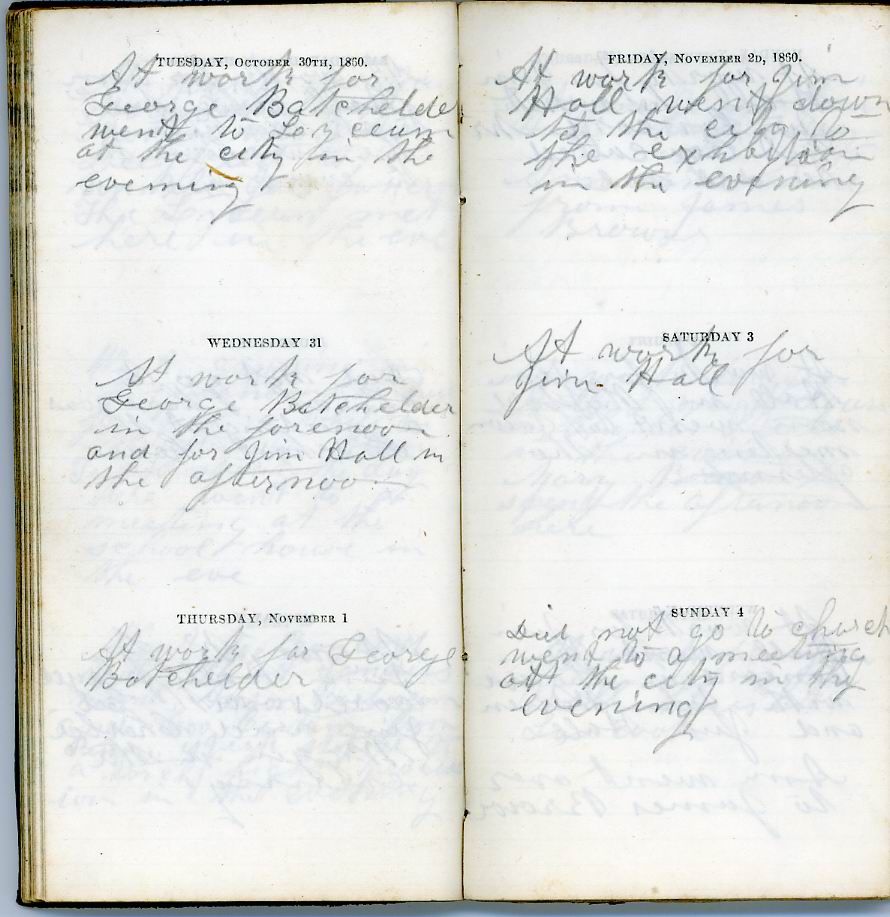 TUESDAY, OCTOBER 30TH, 1860.
At work for
George Batchelder
went to Lyceum
at the city in the
evening
WEDNESDAY 31
At work for
George Batchelder
in the forenoon
and for Jim Hall in
the afternoon
THURSDAY, NOVEMBER 1
At work for George
Batchelder
FRIDAY, NOVEMBER 2D, 1860.
At work for Jim
Hall went down
to the city to
the exhibition
in the evening
SATURDAY 3
At work for
Jim Hall
SUNDAY 4
Did not go to church
went to a meeting
at the city in the
evening